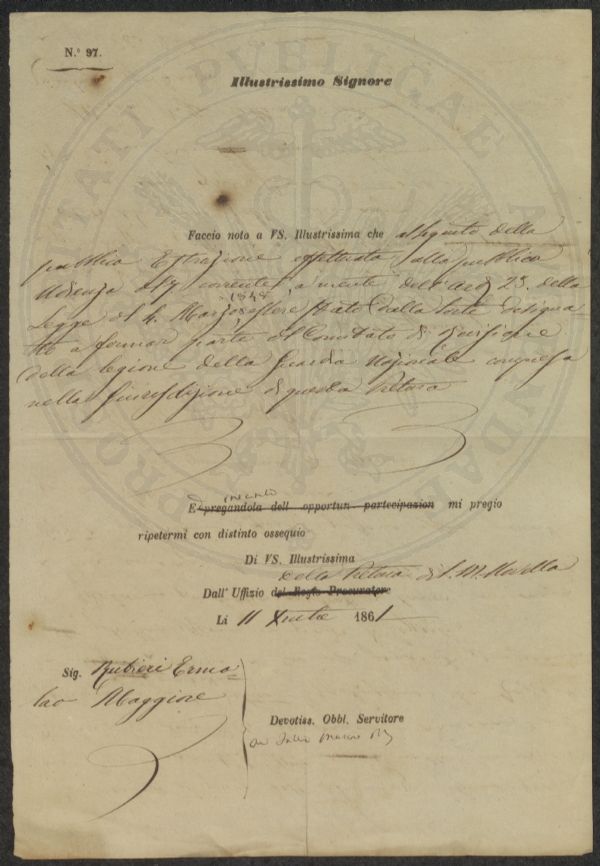 N.° 97.
Illustrissimo Signore
Faccio noto a VS. Illustrissima che al seguito della
pubblica Estrazione effettuata alla pubblica
Udienza del corrente a mente dell'art 25. della
1848
Legge del 4. Marzo Ella è stato dalla sorte designa
to a formar parte del Comitato di Revisione
della legione della Guardia Nazionale compresa
nella Giurisdizione di questa Pretura
E pregandola dell opportun partecipazion mi pregio
ripetermi con distinto ossequio
Di VS. Illustrissima
della Pretura di S. M. Novella
Dall' Uffizio del Regio Procuratore
Li 11 1861
Sig. Rubieri Ermo=
lao Maggiore
Devotiss. Obbl. Servitore